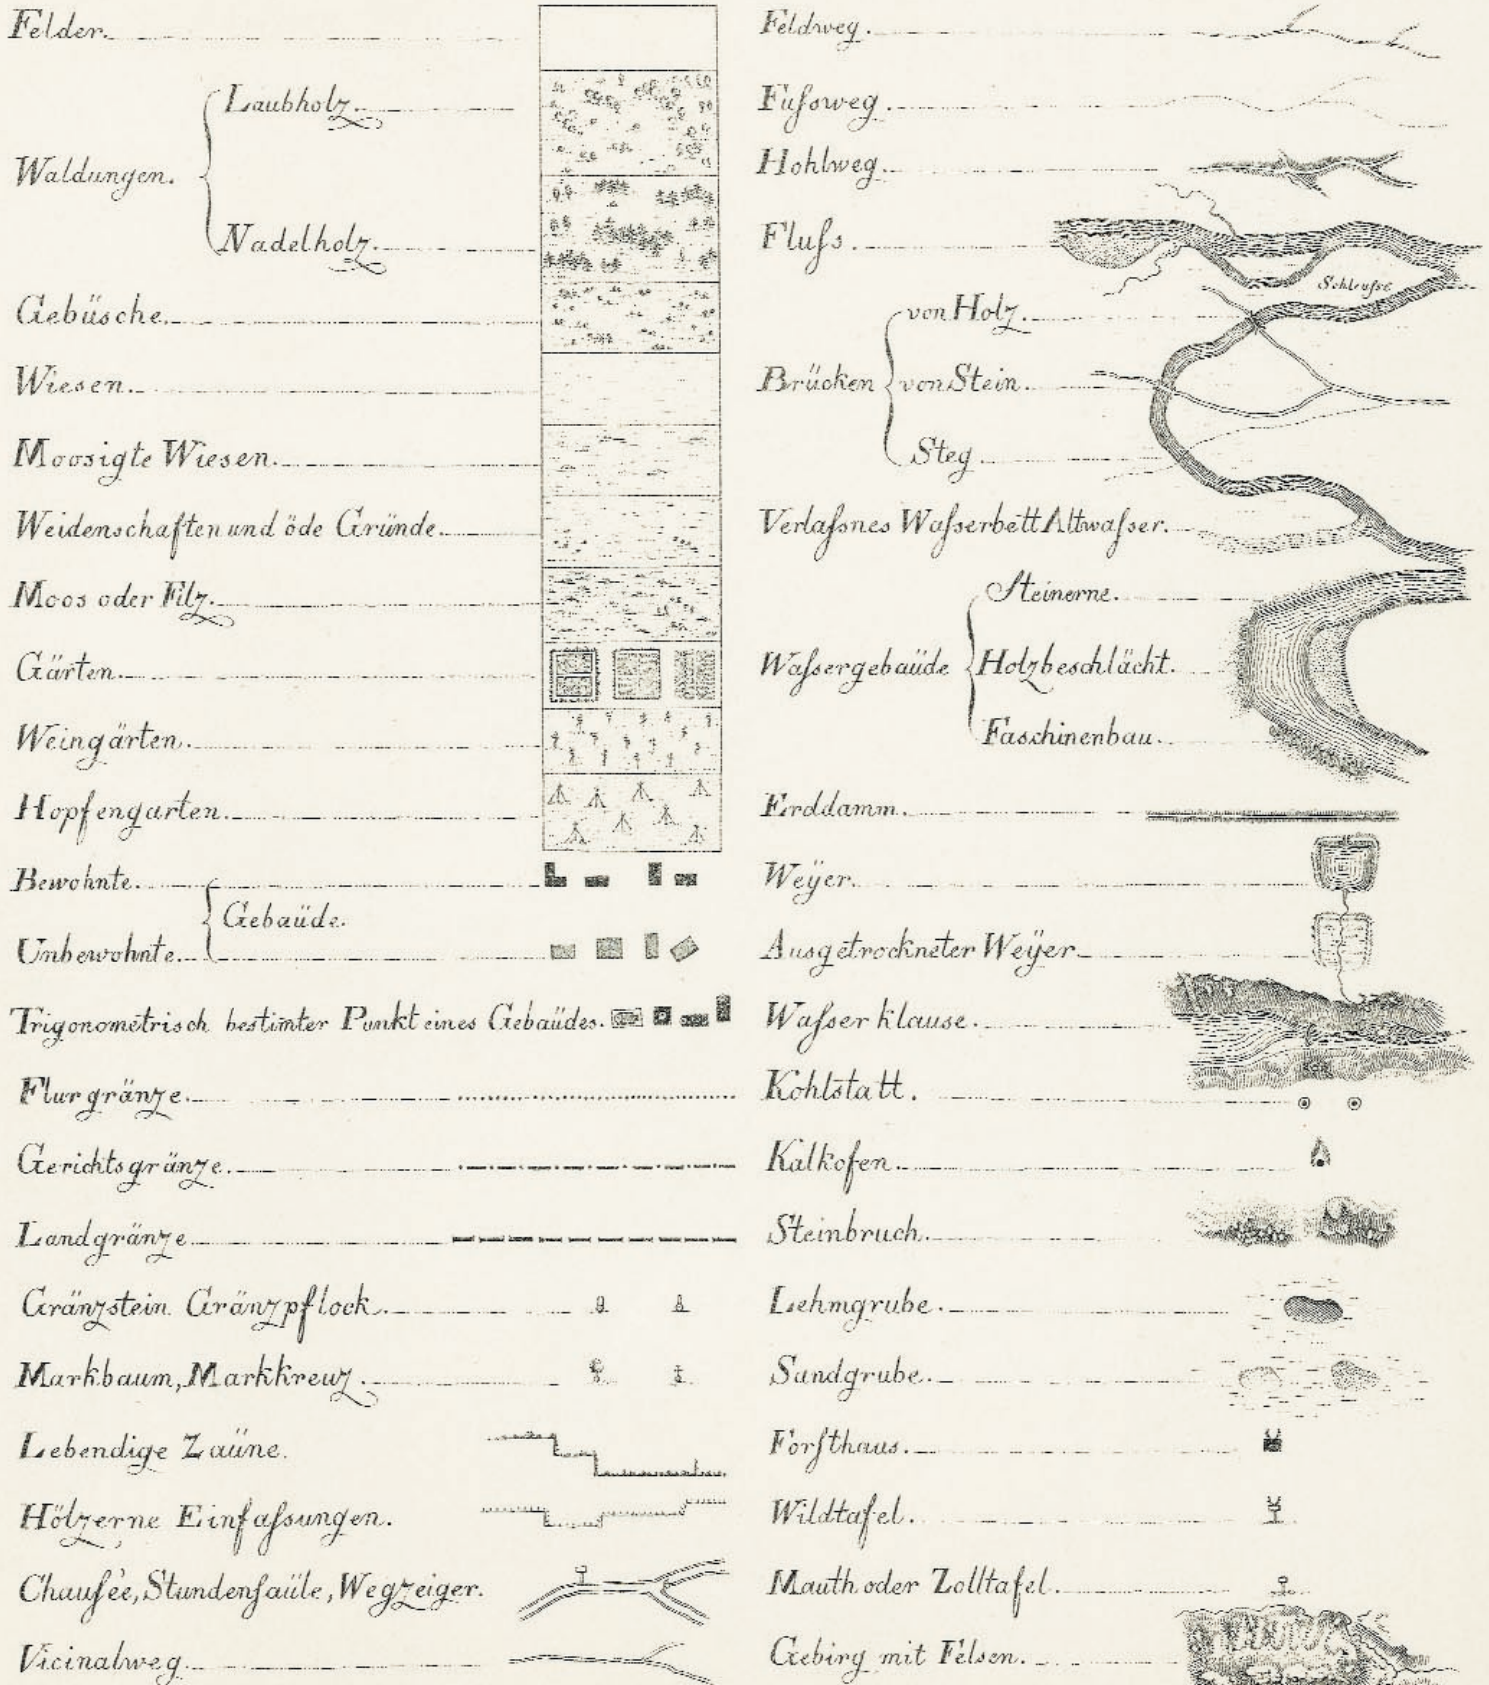 Felder.
Laubholz.
Waldungen.
Nadelholz.
Gebüsche.
Wiesen.
Moosigte Wiesen.
Weidenschaften und öde Gründe.
Moos oder Filz.
Gärten.
Weingärten.
Hopfengarten.
Bewohnte.
Gebaüde.
Unbewohnte.
Trigonometrisch bestimter Punkt eines Gebaüdes.
Flurgränze.
Gerichtsgränze.
Landgränze
Gränzstein. Gränzpflock.
Markbaum, Markkreuz.
Lebendige Zaüne.
Hölzerne Einfaſsungen.
Chauſsèe, Stundenſaüle, Wegzeiger.
Vicinalweg.
Feldweg.
Fuſsweg.
Hohlweg.
Fluſs.
Schleuſse
von Holz.
Brücken von Stein.
Steg.
Verlaſsnes Waſserbett Altwaſser.
Steinerne.
Waſsergebaüde Holzbeschlächt.
Faschinenbau.
Erddamm.
Weÿer.
Ausgetrockneter Weÿer
Waſserklause.
Kohlstatt.
Kalkofen.
Steinbruch.
Lehmgrube.
Sandgrube.
Forſthaus.
Wildtafel.
Mauth oder Zolltafel.
Gebirg mit Felsen.